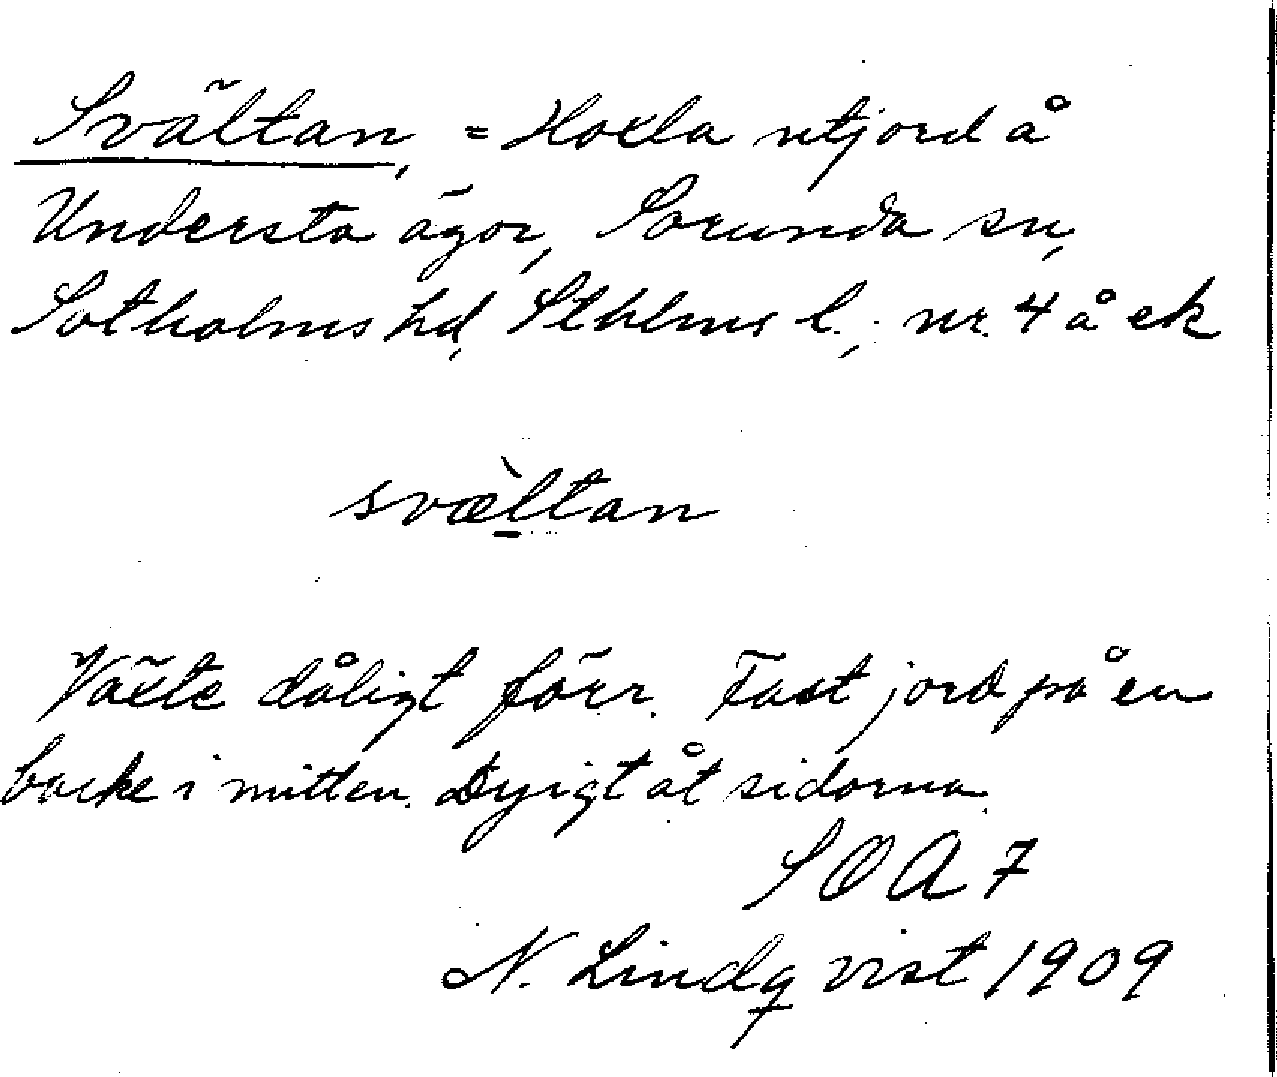 Svältan, = Hoxla utjord å
Understa ägor, Sorunda sn,
Sotholms hd, Sthlms l., nr. 4 å ek
svæ̀ltan
Växte dåligt förr. Fast jord på en
backe i mitten. Dyigt åt sidorna.
SOA 7
N. Lindqvist 1909